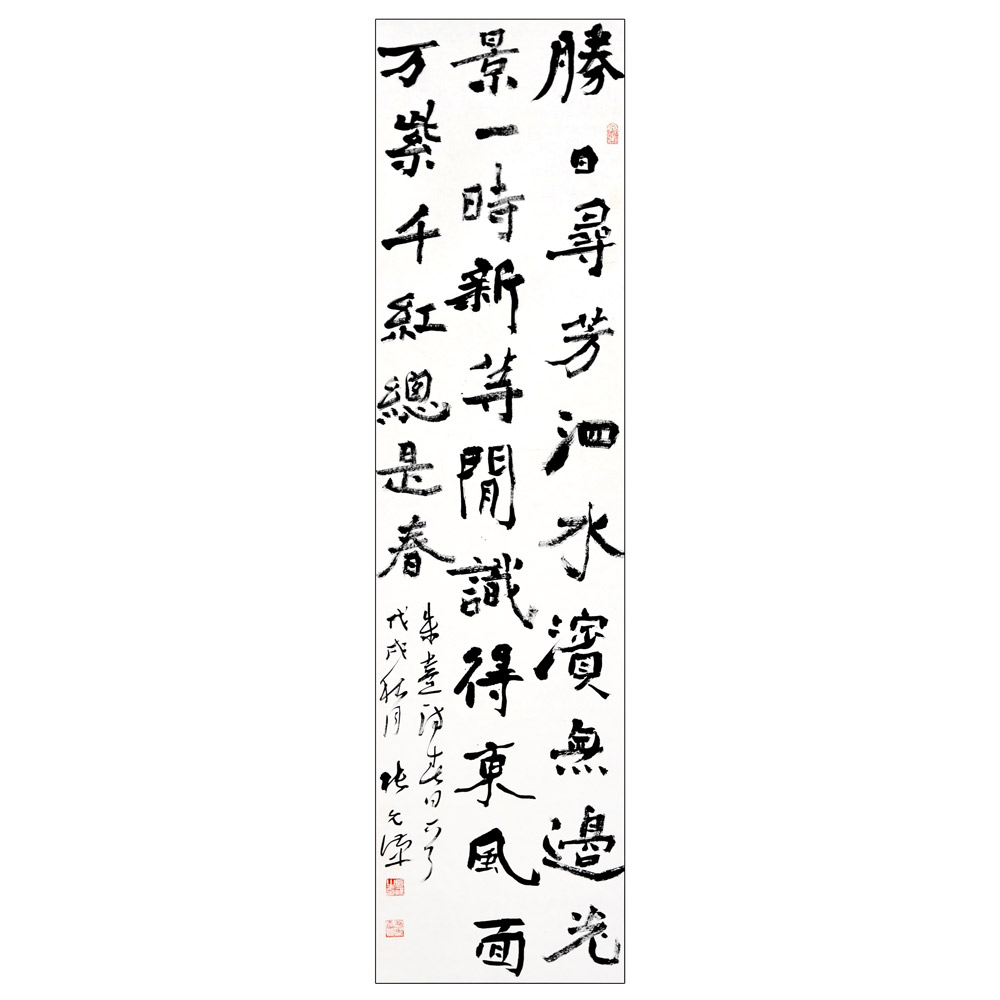 勝日尋芳泗水濱無邊光
景一時新等閒識得東風面
万紫千紅總是春
朱熹詩春日一首
戊戌秋月 張